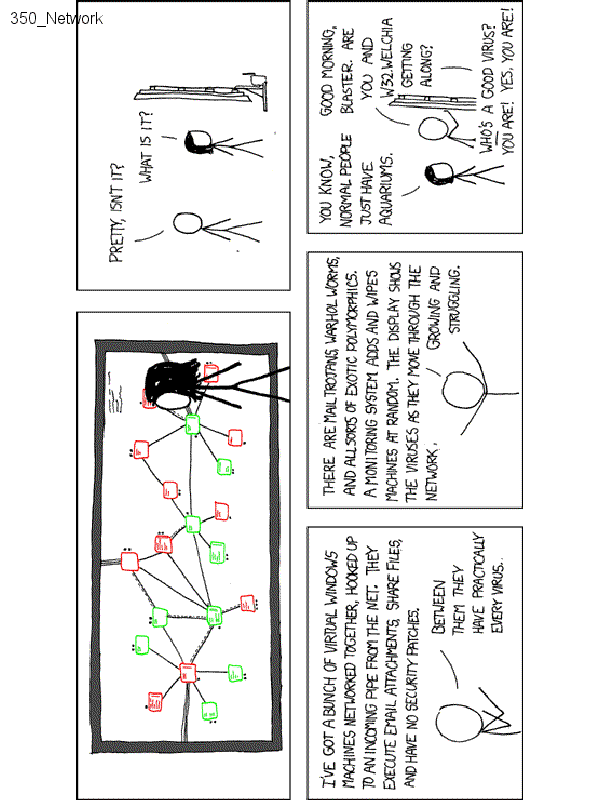 350_Network
PRETTY, ISN'T IT?
WHAT IS IT?
I'VE GOT A BUNCH OF VIRTUAL WINDOWS
MACHINES NETWORKED TOGETHER, HOOKED UP
TO AN INCOMING PIPE FROM THE NET. THEY
EXECUTE EMAIL ATTACHMENTS, SHARE FILES,
AND HAVE NO SECURITY PATCHES.
BETWEEN
THEM THEY
HAVE PRACTICALLY
EVERY VIRUS.
THERE ARE MAIL TROJANS, WARHOL WORMS,
AND ALL SORTS OF EXOTIC POLYMORPHICS.
A MONITORING SYSTEM ADDS AND WIPES
MACHINES AT RANDOM. THE DISPLAY SHOWS
THE VIRUSES AS THEY MOVE THROUGH THE
NETWORK,
GROWING AND
STRUGGLING.
YOU KNOW,
NORMAL PEOPLE
JUST HAVE
AQUARIUMS.
GOOD MORNING,
BLASTER. ARE
YOU AND
W32.WELCHIA
GETTING
ALONG?
WHO'S A GOOD VIRUS?
YOU ARE! YES, YOU ARE!